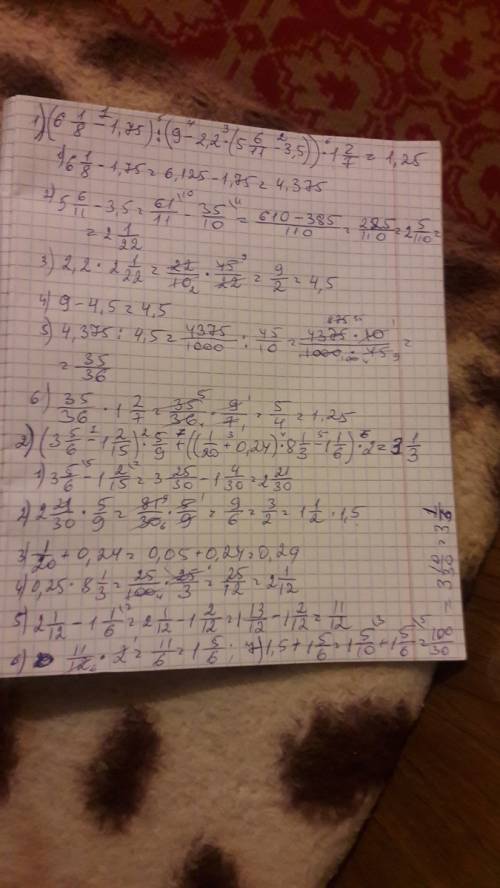 1) (6 1/8 - 1,75) : (9 - 2,2 · (5 6/11 - 3,5)) · 1 2/7 = 1,25
1) 6 1/8 - 1,75 = 6,125 - 1,75 = 4,375
2) 5 6/11 - 3,5 = 61/11 - 35/10 = 610-385/110 = 225/110 = 2 5/110 =
= 2 1/22
3) 2,2 · 2 1/22 = 22/10 · 45/22 = 9/2 = 4,5
4) 9 - 4,5 = 4,5
5) 4,375 : 4,5 = 4375/1000 : 45/10 = 4375 · 10/1000 · 45 =
= 35/36
6) 35/36 · 1 2/7 = 35/36 · 9/7 = 5/4 = 1,25
2) (3 5/6 - 1 2/15) · 5/9 + ((1/20 + 0,24) · 8 1/3 - 1 1/6) · 2 = 3 1/3
1) 3 5/6 - 1 2/15 = 3 25/30 - 1 4/30 = 2 21/30
2) 2 21/30 · 5/9 = 81/30 · 5/9 = 9/6 = 3/2 = 1 1/2 · 1,5
3) 1/20 + 0,24 = 0,05 + 0,24 = 0,29
4) 0,25 · 8 1/3 = 25/100 · 25/3 = 25/12 = 2 1/12
5) 2 1/12 - 1 1/6 = 2 1/12 - 1 2/12 = 1 13/12 - 1 2/12 = 11/12
6) 11/12 · 2 = 11/6 = 1 5/6 ; 7) 1,5 + 1 5/6 = 1 5/10 + 1 5/6 = 100/30
= 3 10/30 = 3 1/3